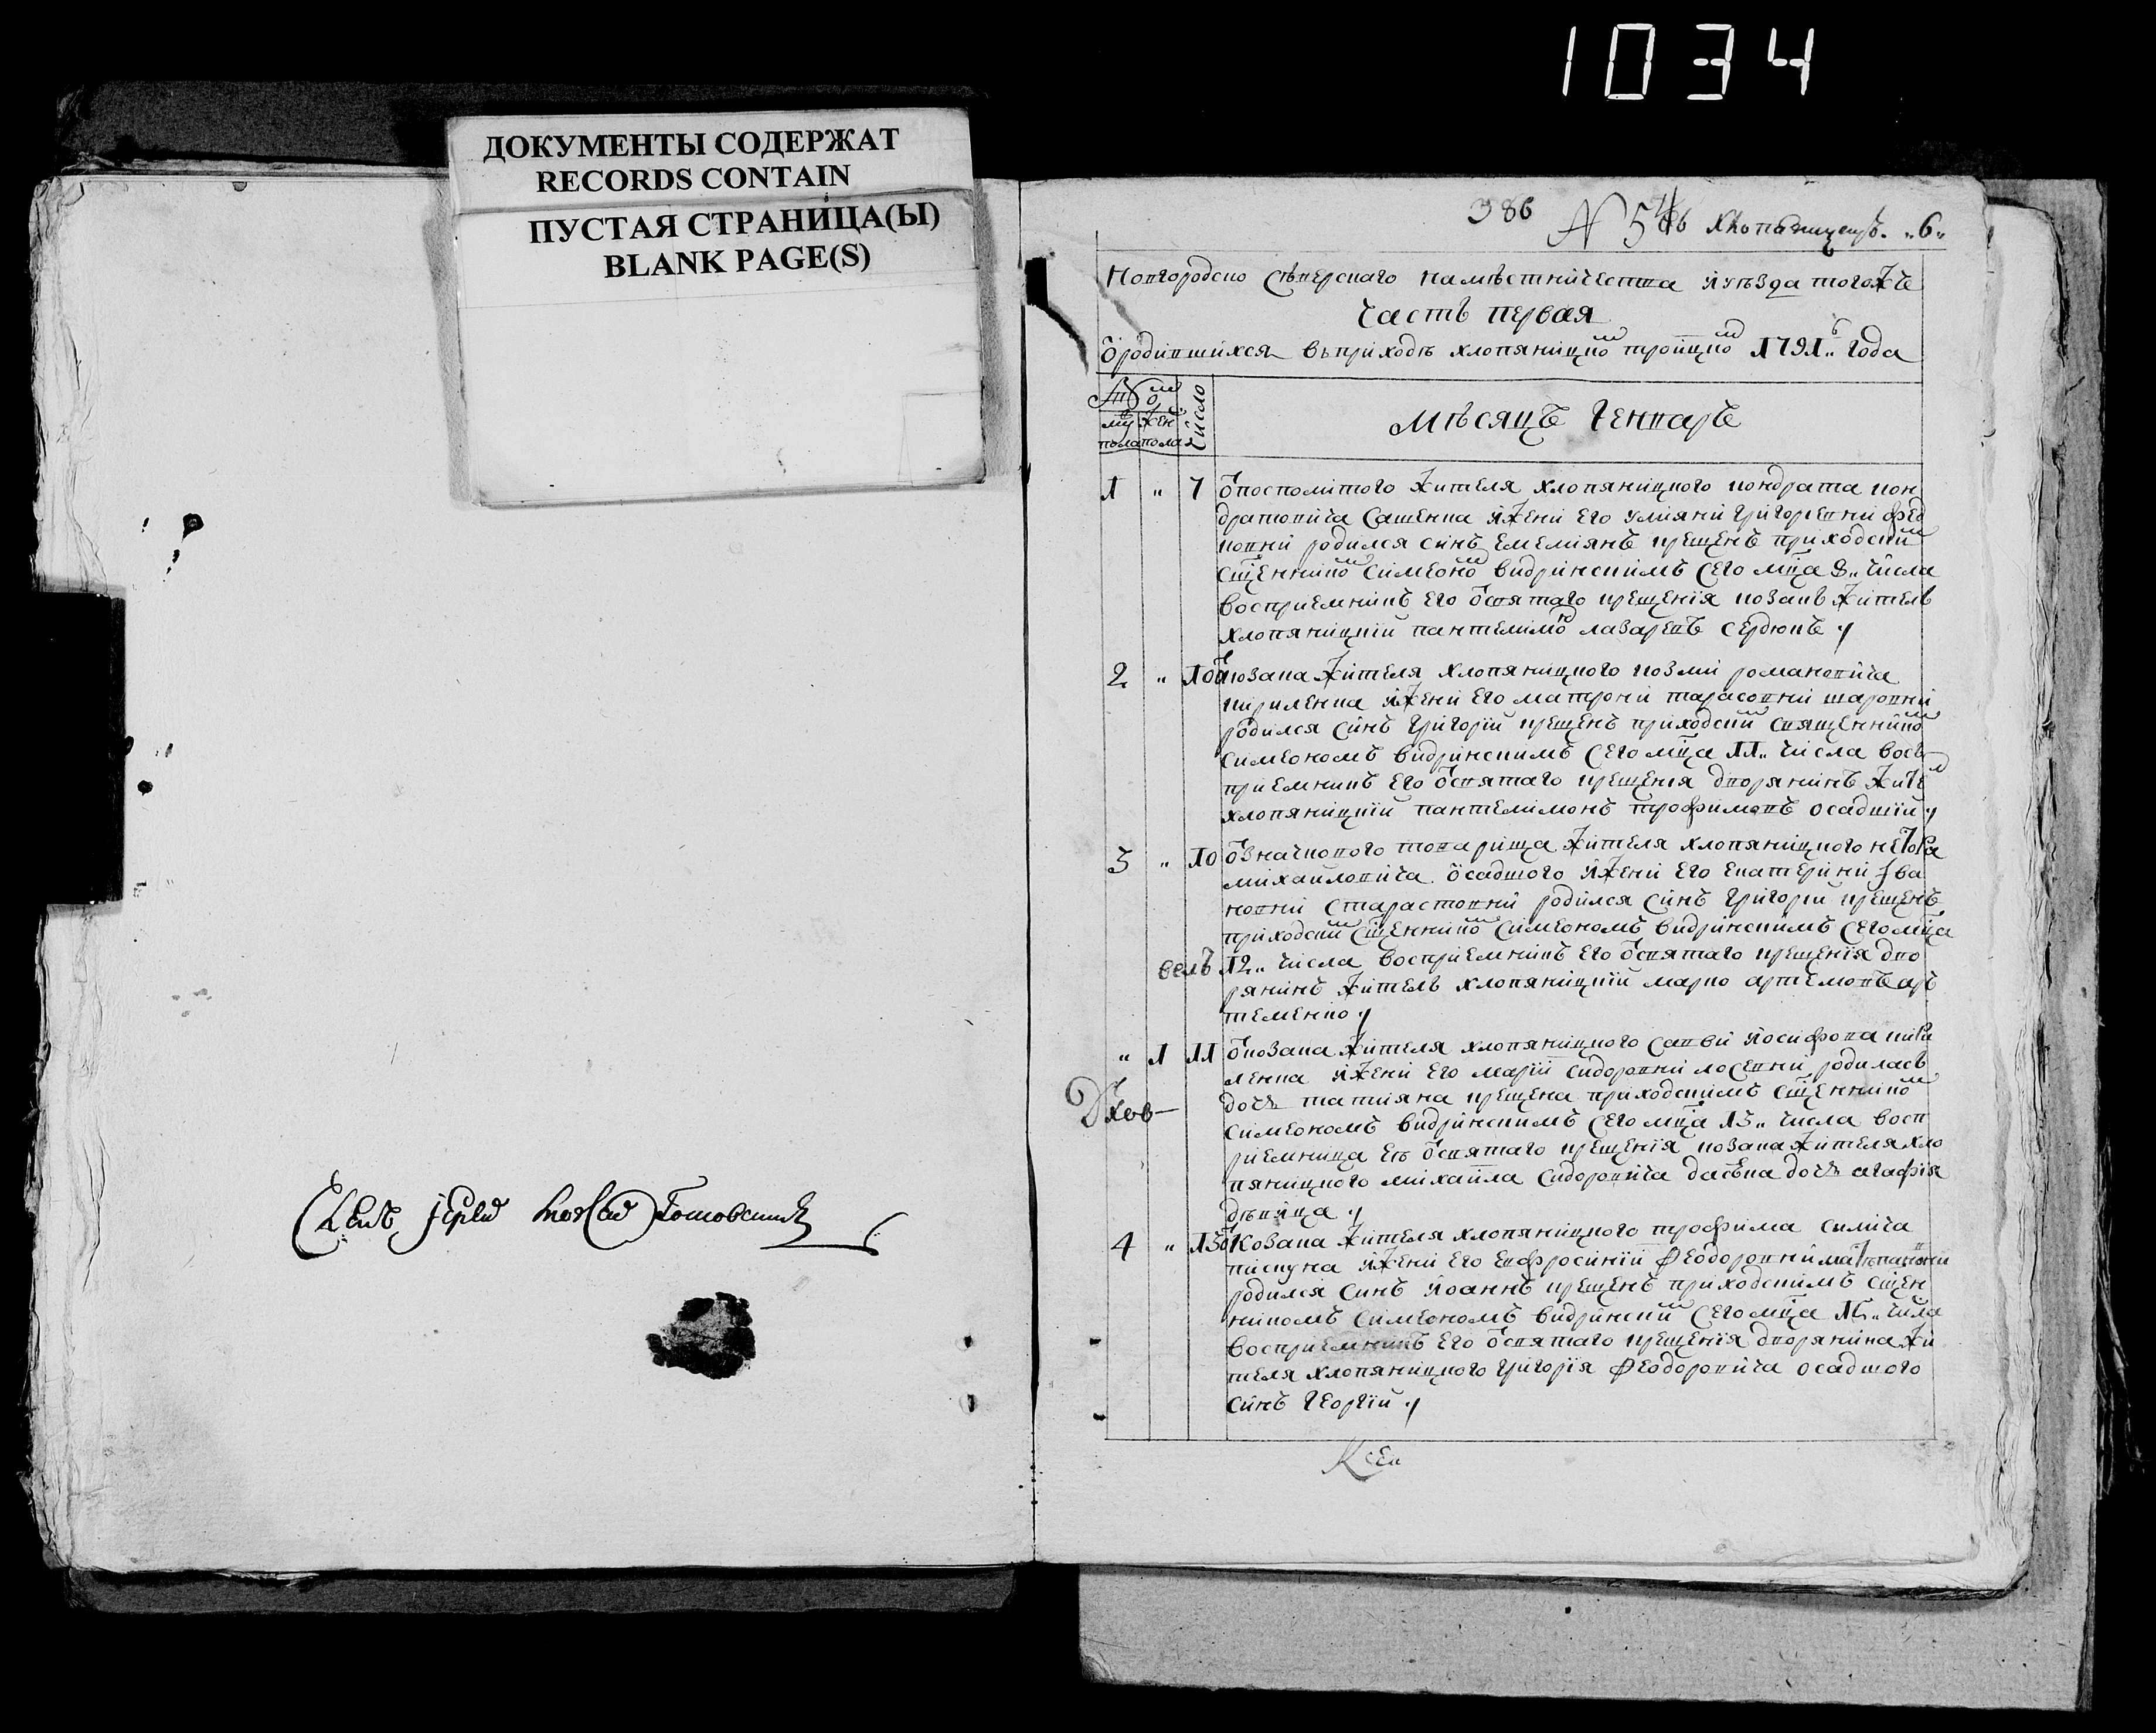 1034
ДОКУМЕНТЫ СОДЕРЖАТ
RECORDS CONTAIN
ПУСТАЯ СТРАНИЦА(Ы)
BLANK PAGE(S)
386 N 54 "6"
Новгородско Сѣверскаго намѣстничества и уѣзда того же
Часть первая
О родившихся въ приходѣ хлопяницком троицком 1791 года
муж жен Число
пола пола
Мѣсяцъ Генварь
1 " 7 У посполитого жителя хлопяницкого кондрата кон
дратовича Сашенка и жени его улияни григориевни
родился синъ Емелиянъ крещенъ приходским
сщенником Симеоном видринскимъ сего мца 8" числа
восприемникъ его ѿ святаго крещения козакъ житель
хлопяницкий пантелимон лазаревъ сердюкъ
2 " 10 У козака жителя хлопяницкого козми романовича
кириленка и жени его матрони тарасовни шаровни
родился синъ григорий крещенъ приходским священником
симеономъ видринскимъ сего мца 11" числа вос
приемникъ его ѿ святаго крещения дворянинъ жител
хлопяницкий пантелимонъ трофимовъ осадший
3 " 10 У значкового товариша жителя хлопяницкого
михайловича осадшого и жени его екатерини ива
новни старостовни родился синъ григорий крещенъ
приходским сщенником симеономъ видринскимъ сего мца
12" числа восприемникъ его ѿ святаго крещения дво
рянинъ житель хлопяницкий марко артемовъ ар
теменко
" 1 11 У козака жителя хлопяницкого савви иосифова кири
ленка и жени его марии сидоровни лосевни родилась
дочь татияна крещена приходскимъ сщенником
симеономъ видринскимъ сего мца 13" числа восп
риемница еѣ ѿ святаго крещения козака жителя хло
пяницкого михайла сидоровича дочь агафия
дѣвица
4 " 13 У козака жителя хлопяницкого трофима
пискуна и жени его евфросинии феодоровни
родился синъ иоаннъ крещенъ приходскимъ сщен
никомъ симеономъ видринским сего мца числа
восприемникъ его ѿ святаго крещения дворянина жи
теля хлопяницкого григория феодоровича осадшого
синъ георгий